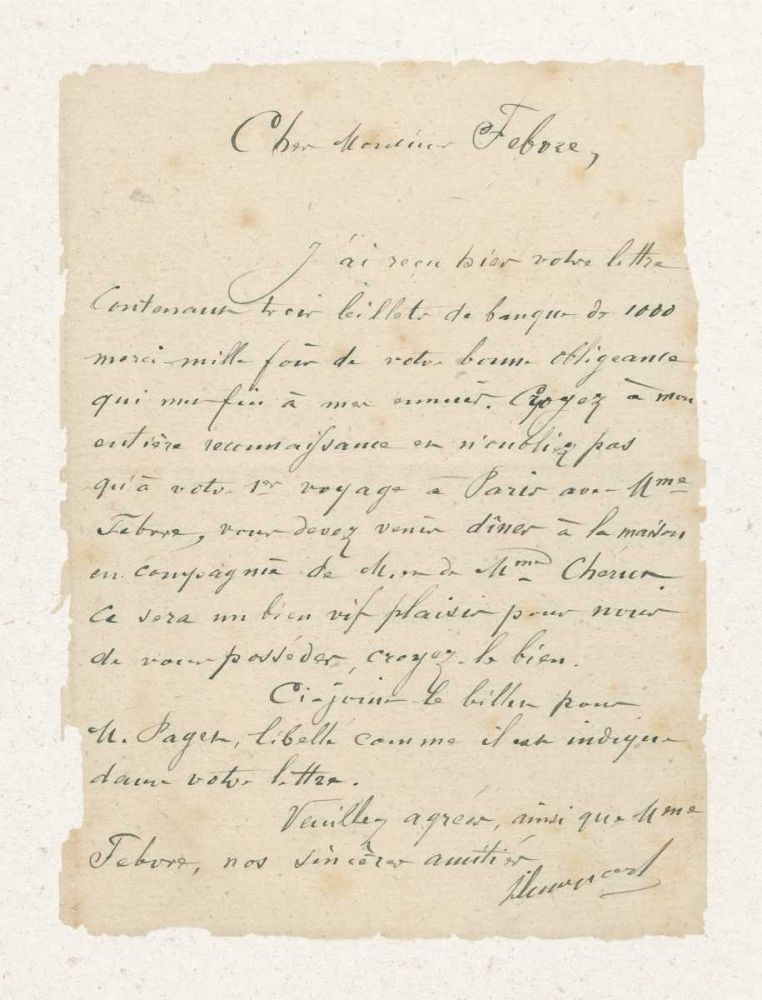 Cher Monsieur Febvre,
J'ai reçu hier votre lettre
contenant trois billets de banque de 1000
merci mille fois de votre bonne obligeance
qui met fin à mes ennuis. Croyez à mon
entière reconnaissance et n'oubliez pas
qu'à votre 1er voyage à Paris avec Mme
Febvre, vous devez venir dîner à la maison
en compagnie de M. et de Mme
Ce sera un bien vif plaisir pour nous
de vous posséder, croyez-le bien.
Ci-joint le billet pour
M. Pagest, libellé comme il est indiqué
dans votre lettre.
Veuillez agréer, ainsi que Mme
Febvre, nos sincères amitiés